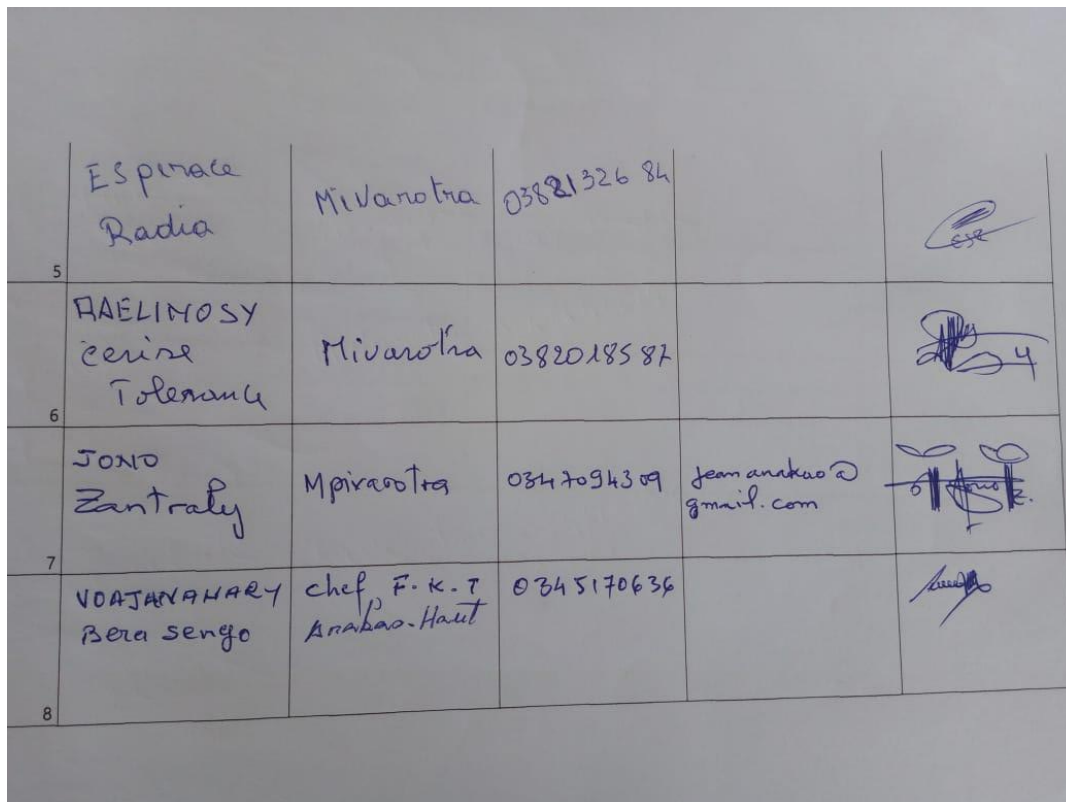 Espirace
Radia
Mivarotra
0382132684
5
RAELINOSY
Cerise
Tolerance
Mivarotra
0382018587
6
JONO
Zantraly
Mpivarotra
0347094309
jeananakao@
gmail.com
7
VOAJANAHARY
Bera sengo
chef, F.K.T
Anakao-Haut
0345170636
8